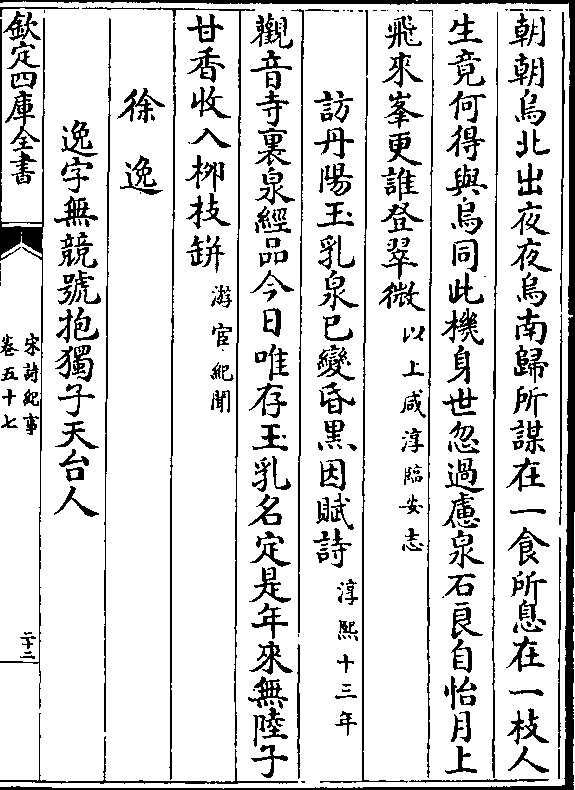 朝朝烏北出夜夜烏南歸所謀在一食所息在一枝人
生竟何得與烏同此機身世忽過慮泉石良自怡月上
飛來峯更誰登翠微以上咸淳臨安志
訪丹陽玉乳泉已變昏黒因賦詩淳熙十三年
觀音寺裏泉經品今日唯存玉乳名定是年來無陸子
甘香收入栁枝缾游宦紀聞
徐逸
逸字無競號抱獨子天台人
欽定四庫全書
宋詩紀事
卷五十七
二十二